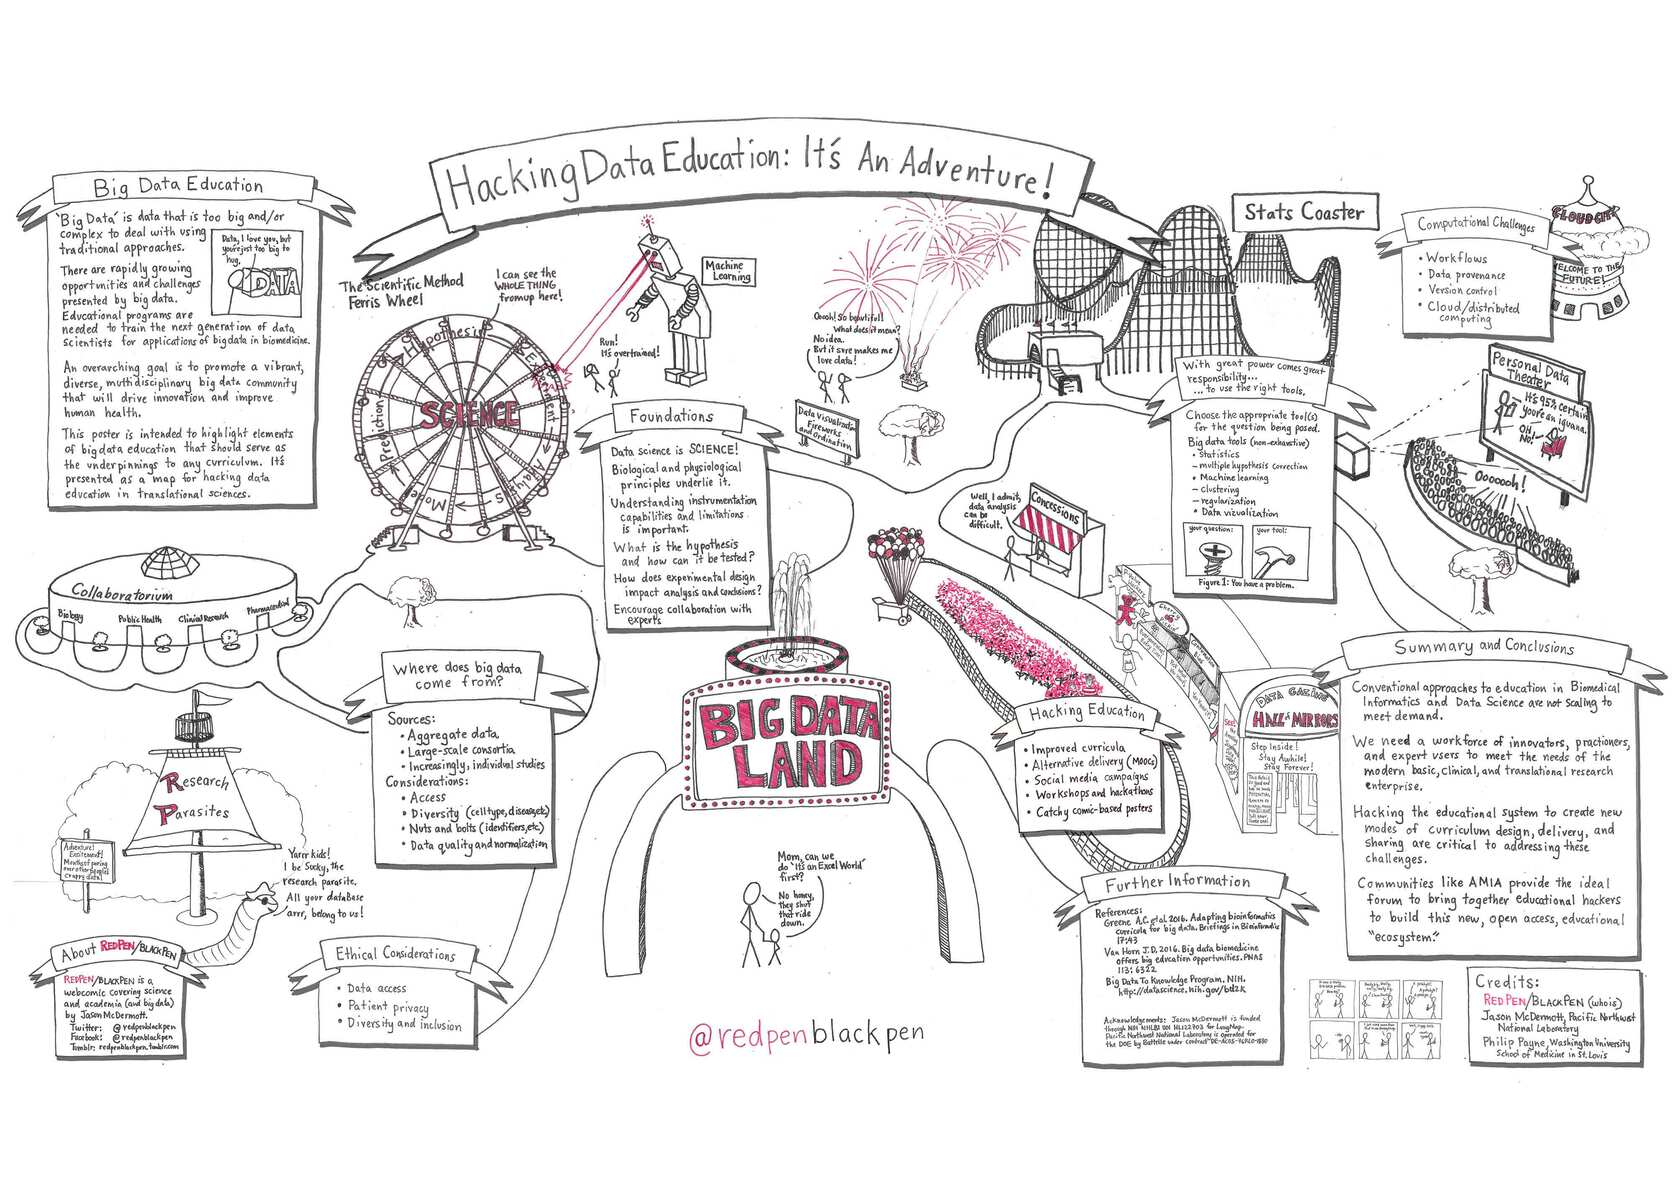 Hacking Data Education: It's An Adventure!
Big Data Education
'Big Data' is data that is too big and/or
complex to deal with using
traditional approaches.
There are rapidly growing
opportunities and challenges
presented by big data.
Educational programs are
needed to train the next generation of data
scientists for applications of big data in biomedicine.
Data, I love you, but
you're just too big to
hug.
DATA
An overarching goal is to promote a vibrant,
diverse, multidisciplinary big data community
that will drive innovation and improve
human health.
This poster is intended to highlight elements
of big data education that should serve as
the underpinnings to any curriculum. It's
presented as a map for hacking data
education in translational sciences.
The Scientific Method
Ferris Wheel
I can see the
WHOLE THING
from up here!
Hypothesis
Experiment
Analysis
Model
Prediction
SCIENCE
Machine
Learning
Run!
It's overtrained!
Oooh! So beautiful!
What does it mean?
No idea.
But it sure makes me
love data!
Data Visualization
Fireworks
and Ordination
Stats Coaster
Computational Challenges
• Workflows
• Data provenance
• Version control
• Cloud/distributed
computing
CLOUD CITY
WELCOME TO THE
FUTURE!
Foundations
Data science is SCIENCE!
Biological and physiological
principles underlie it.
Understanding instrumentation
capabilities and limitations
is important.
What is the hypothesis
and how can it be tested?
How does experimental design
impact analysis and conclusions?
Encourage collaboration with
experts
With great power comes great
responsibility...
...to use the right tools.
Choose the appropriate tool(s)
for the question being posed.
Big data tools (non-exhaustive)
• Statistics
– multiple hypothesis correction
• Machine learning
– clustering
– regularization
• Data vizualization
your question:
your tool:
Figure 1: You have a problem.
Personal Data
Theater
It's 95% certain
you're an iguana.
OH,
NO!
Ooooooh!
Well, I admit,
data analysis
can be
difficult.
Concessions
Collaboratorium
Biology
Public Health
Clinical Research
Pharmaceutical
Where does big data
come from?
Sources:
• Aggregate data
• Large-scale consortia
• Increasingly, individual studies
Considerations:
• Access
• Diversity (cell type, disease, etc)
• Nuts and bolts (identifiers, etc.)
• Data quality and normalization
BIG DATA
LAND
Mom, can we
do 'It's an Excel World'
first?
No honey,
they shut
that ride
down.
@redpenblackpen
Hacking Education
• Improved curricula
• Alternative delivery (MOOCs)
• Social media campaigns
• Workshops and hackathons
• Catchy comic-based posters
DATA GAZING
HALL of MIRRORS
Step Inside!
Stay Awhile!
Stay Forever!
Summary and Conclusions
Conventional approaches to education in Biomedical
Informatics and Data Science are not scaling to
meet demand.
We need a workforce of innovators, practioners,
and expert users to meet the needs of the
modern basic, clinical, and translational research
enterprise.
Hacking the educational system to create new
modes of curriculum design, delivery, and
sharing are critical to addressing these
challenges.
Communities like AMIA provide the ideal
forum to bring together educational hackers
to build this new, open access, educational
"ecosystem."
Research
Parasites
Adventure!
Excitement!
Yarrr kids!
I be Sucky, the
research parasite.
All your dataBase
arrr, belong to us!
About REDPEN/BLACKPEN
REDPEN/BLACKPEN is a
webcomic covering science
and academia (and big data)
by Jason McDermott.
Twitter: @redpenblackpen
Facebook: @redpenblackpen
Tumblr: redpenblackpen.tumblr.com
Ethical Considerations
• Data access
• Patient privacy
• Diversity and inclusion
Further Information
References:
Greene A.C. et al. 2016. Adapting bioinformatics
curricula for big data. Briefings in Bioinformatics
17:43
Van Horn J.D. 2016. Big data biomedicine
offers big education opportunities. PNAS
113: 6322
Big Data To Knowledge Program, NIH.
http://datascience.nih.gov/bd2k
Acknowledgements: Jason McDermott is funded
Pacific Northwest National Laboratory is operated for
the DOE by Battelle under contract
Credits:
REDPEN/BLACKPEN (who is)
Jason McDermott, Pacific Northwest
National Laboratory
Philip Payne, Washington University
School of Medicine in St. Louis